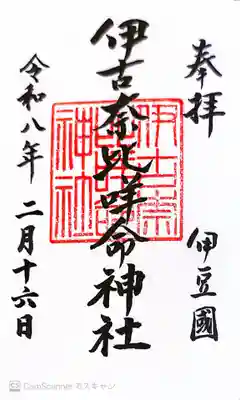 奉拝
伊豆國
伊古奈比咩命神社
伊古奈
比咩命
神社
令和八年 二月十六日
CS CamScanner でスキャン